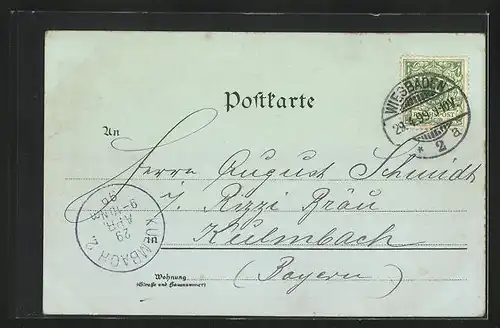 Postkarte
WIESBADEN
29.4.99. 9-10V.
* 2 a
An
Herrn August Schmidt
i/ Rizzi Bräu
Kulmbach
(Bayern)
KULMBACH 2.
29
APR
9-10NM
99
Wohnung
(Straße und Hausnummer)